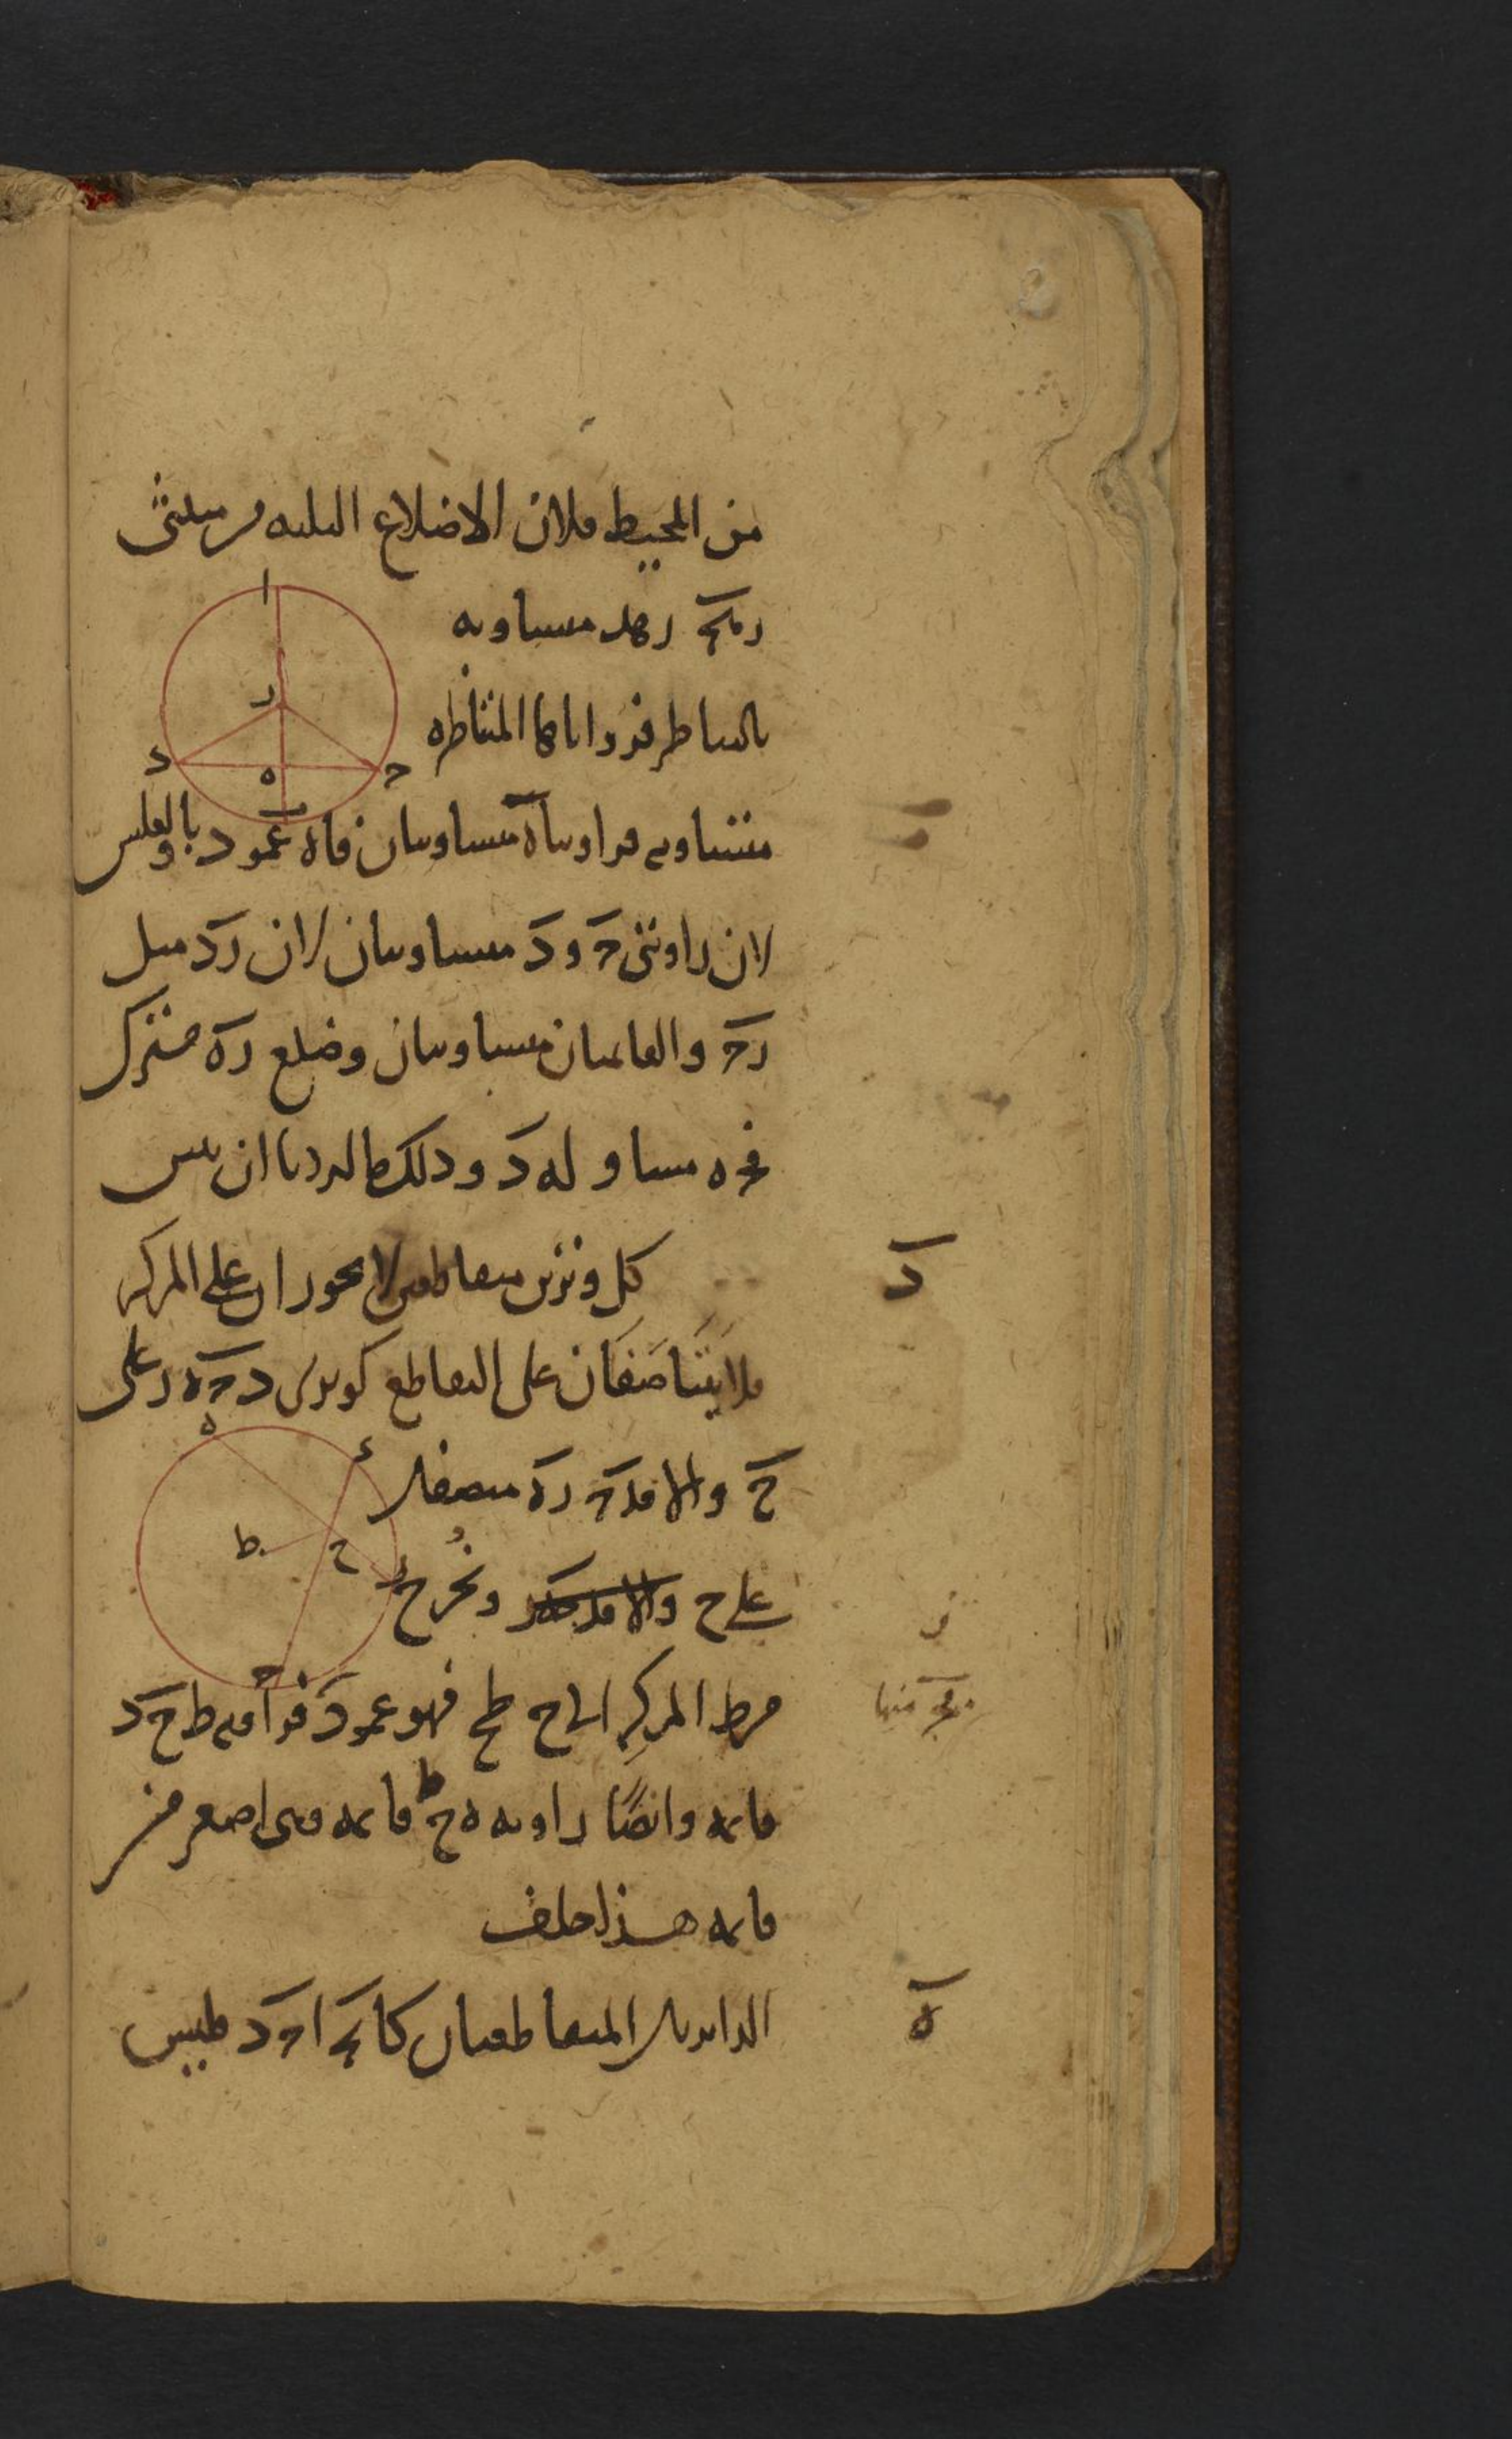 من المحيط فلان الاضلاع الثلثة من مثلثى
ره‍ح ره‍د متساوية
بالتناظر فزواياها المتناظرة
متساوية فزاويتا ه متساويتان فا ه عمود وبالعكس
لان زاويتى ح و د متساويتان لان رد مثل
رح والقائمتان متساويتان وضلع ره مشترك
فح ه مساو له د وذلك ما اردنا ان نبين
د
كل وترين متقاطعين لا يجوزان على المركز
فلا يتناصفان على التقاطع كوترى د ح ه ر على
ح والا فد ح ره تنصفا
على ح ونخرج
من ط المركز الى ح ط ح فهو عمود فزاوية ط ح د
قائمة وايضا زاوية ه ح ط قائمة وهى اصغر من
قائمة هذا خلف
ه
الدائرتان المتقاطعتان كا ب ح ا ح د ليس